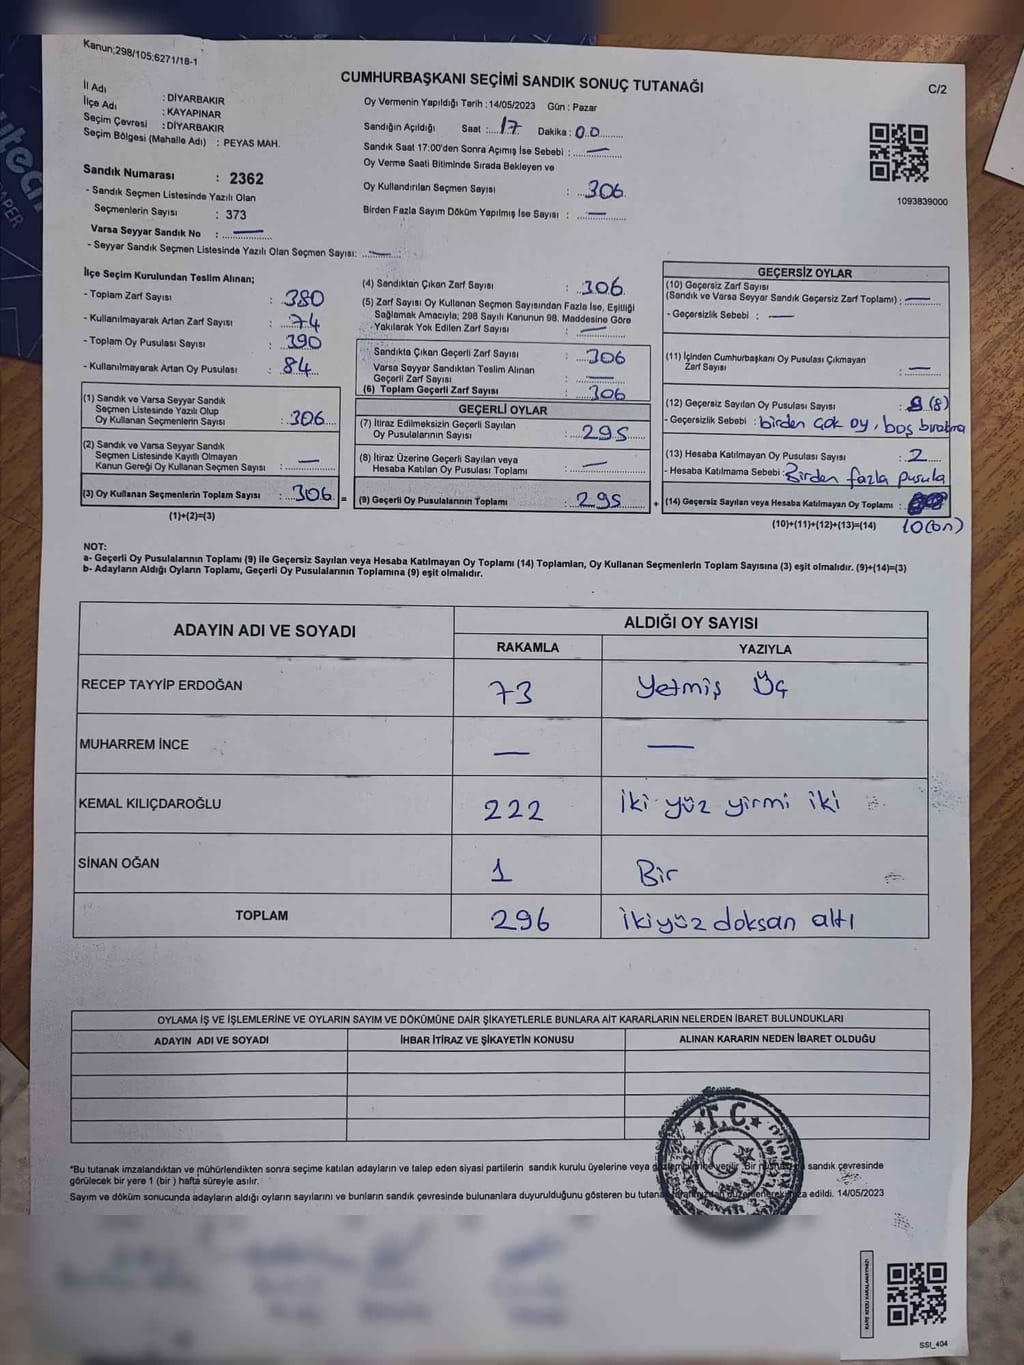 Kanun;298/105;6271/18-1
CUMHURBAŞKANI SEÇİMİ SANDIK SONUÇ TUTANAĞI
C/2
İl Adı : DİYARBAKIR
İlçe Adı : KAYAPINAR
Seçim Çevresi : DİYARBAKIR
Seçim Bölgesi (Mahalle Adı) : PEYAS MAH.
Oy Vermenin Yapıldığı Tarih : 14/05/2023 Gün : Pazar
Sandığın Açıldığı Saat : 17 Dakika : 00
Sandık Saat 17:00'den Sonra Açımış İse Sebebi : —
Oy Verme Saati Bitiminde Sırada Bekleyen ve
Oy Kullandırılan Seçmen Sayısı : 306
Birden Fazla Sayım Döküm Yapılmış İse Sayısı : —
1093839000
Sandık Numarası : 2362
- Sandık Seçmen Listesinde Yazılı Olan
Seçmenlerin Sayısı : 373
Varsa Seyyar Sandık No : —
- Seyyar Sandık Seçmen Listesinde Yazılı Olan Seçmen Sayısı: —
İlçe Seçim Kurulundan Teslim Alınan;
- Toplam Zarf Sayısı : 380
- Kullanılmayarak Artan Zarf Sayısı : 74
- Toplam Oy Pusulası Sayısı : 390
- Kullanılmayarak Artan Oy Pusulası : 84
(1) Sandık ve Varsa Seyyar Sandık
Seçmen Listesinde Yazılı Olup
Oy Kullanan Seçmenlerin Sayısı : 306
(2) Sandık ve Varsa Seyyar Sandık
Seçmen Listesinde Kayıtlı Olmayan
Kanun Gereği Oy Kullanan Seçmen Sayısı : —
(3) Oy Kullanan Seçmenlerin Toplam Sayısı : 306 =
(1)+(2)=(3)
(4) Sandıktan Çıkan Zarf Sayısı : 306
(5) Zarf Sayısı Oy Kullanan Seçmen Sayısından Fazla İse, Eşitliği
Sağlamak Amacıyla; 298 Sayılı Kanunun 98. Maddesine Göre
Yakılarak Yok Edilen Zarf Sayısı : —
Sandıkta Çıkan Geçerli Zarf Sayısı : 306
Varsa Seyyar Sandıktan Teslim Alınan
Geçerli Zarf Sayısı : —
(6) Toplam Geçerli Zarf Sayısı : 306
GEÇERLİ OYLAR
(7) İtiraz Edilmeksizin Geçerli Sayılan
Oy Pusulalarının Sayısı : 295
(8) İtiraz Üzerine Geçerli Sayılan veya
Hesaba Katılan Oy Pusulası Toplamı : —
(9) Geçerli Oy Pusulalarının Toplamı : 295 +
GEÇERSİZ OYLAR
(10) Geçersiz Zarf Sayısı
(Sandık ve Varsa Seyyar Sandık Geçersiz Zarf Toplamı) : —
- Geçersizlik Sebebi : —
(11) İçinden Cumhurbaşkanı Oy Pusulası Çıkmayan
Zarf Sayısı : —
(12) Geçersiz Sayılan Oy Pusulası Sayısı : 8 (8)
- Geçersizlik Sebebi : birden çok oy, boş bırakma
(13) Hesaba Katılmayan Oy Pusulası Sayısı : 2
- Hesaba Katılmama Sebebi : Birden fazla pusula
(14) Geçersiz Sayılan veya Hesaba Katılmayan Oy Toplamı :
(10)+(11)+(12)+(13)=(14) 10(on)
NOT:
a- Geçerli Oy Pusulalarının Toplamı (9) ile Geçersiz Sayılan veya Hesaba Katılmayan Oy Toplamı (14) Toplamları, Oy Kullanan Seçmenlerin Toplam Sayısına (3) eşit olmalıdır. (9)+(14)=(3)
b- Adayların Aldığı Oyların Toplamı, Geçerli Oy Pusulalarının Toplamına (9) eşit olmalıdır.
ADAYIN ADI VE SOYADI
ALDIĞI OY SAYISI
RAKAMLA YAZIYLA
RECEP TAYYİP ERDOĞAN 73 Yetmiş Üç
MUHARREM İNCE — —
KEMAL KILIÇDAROĞLU 222 İki yüz yirmi iki
SİNAN OĞAN 1 Bir
TOPLAM 296 İkiyüz doksan altı
OYLAMA İŞ VE İŞLEMLERİNE VE OYLARIN SAYIM VE DÖKÜMÜNE DAİR ŞİKAYETLERLE BUNLARA AİT KARARLARIN NELERDEN İBARET BULUNDUKLARI
ADAYIN ADI VE SOYADI İHBAR İTİRAZ VE ŞİKAYETİN KONUSU ALINAN KARARIN NEDEN İBARET OLDUĞU
T.C.
*Bu tutanak imzalandıktan ve mühürlendikten sonra seçime katılan adayların ve talep eden siyasi partilerin sandık kurulu üyelerine veya verilir. Bir sandık çevresinde
görülecek bir yere 1 (bir ) hafta süreyle asılır.
Sayım ve döküm sonucunda adayların aldığı oyların sayılarını ve bunların sandık çevresinde bulunanlara duyurulduğunu gösteren bu tutanak edildi. 14/05/2023
KARE KODU KARALAMAYINIZ!
SSI_404